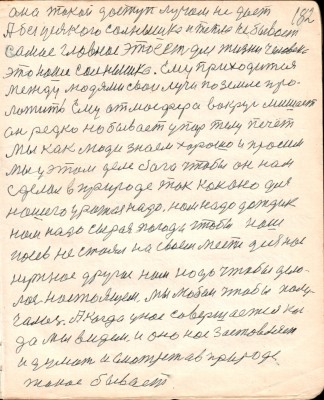 она такой доступ лучам не дает 182
А без всякого солнышка и тепла не бывает
самое главное это есть для жизни человека
это наше солнышко. Ему приходится
между людями свои лучи по земле про-
ложить Ему атмосфера вокруг мешает
он редко но бывает упар телу печет
Мы как люди знаем хорошо и просим
мы у этом деле бога чтобы он нам
сделал в природе так как оно для
нашего урожая надо, нам надо дождик
нам надо сырая погода чтобы наш
посев не стоял на своем месте для нас
нужное другое нам надо чтобы дела-
лось настоящем, мы любим чтобы полу-
чалось. А когда у нас совершается ког
да мы видем и оно нас заставляет
и думат и смотреть в природе
такое бывает.